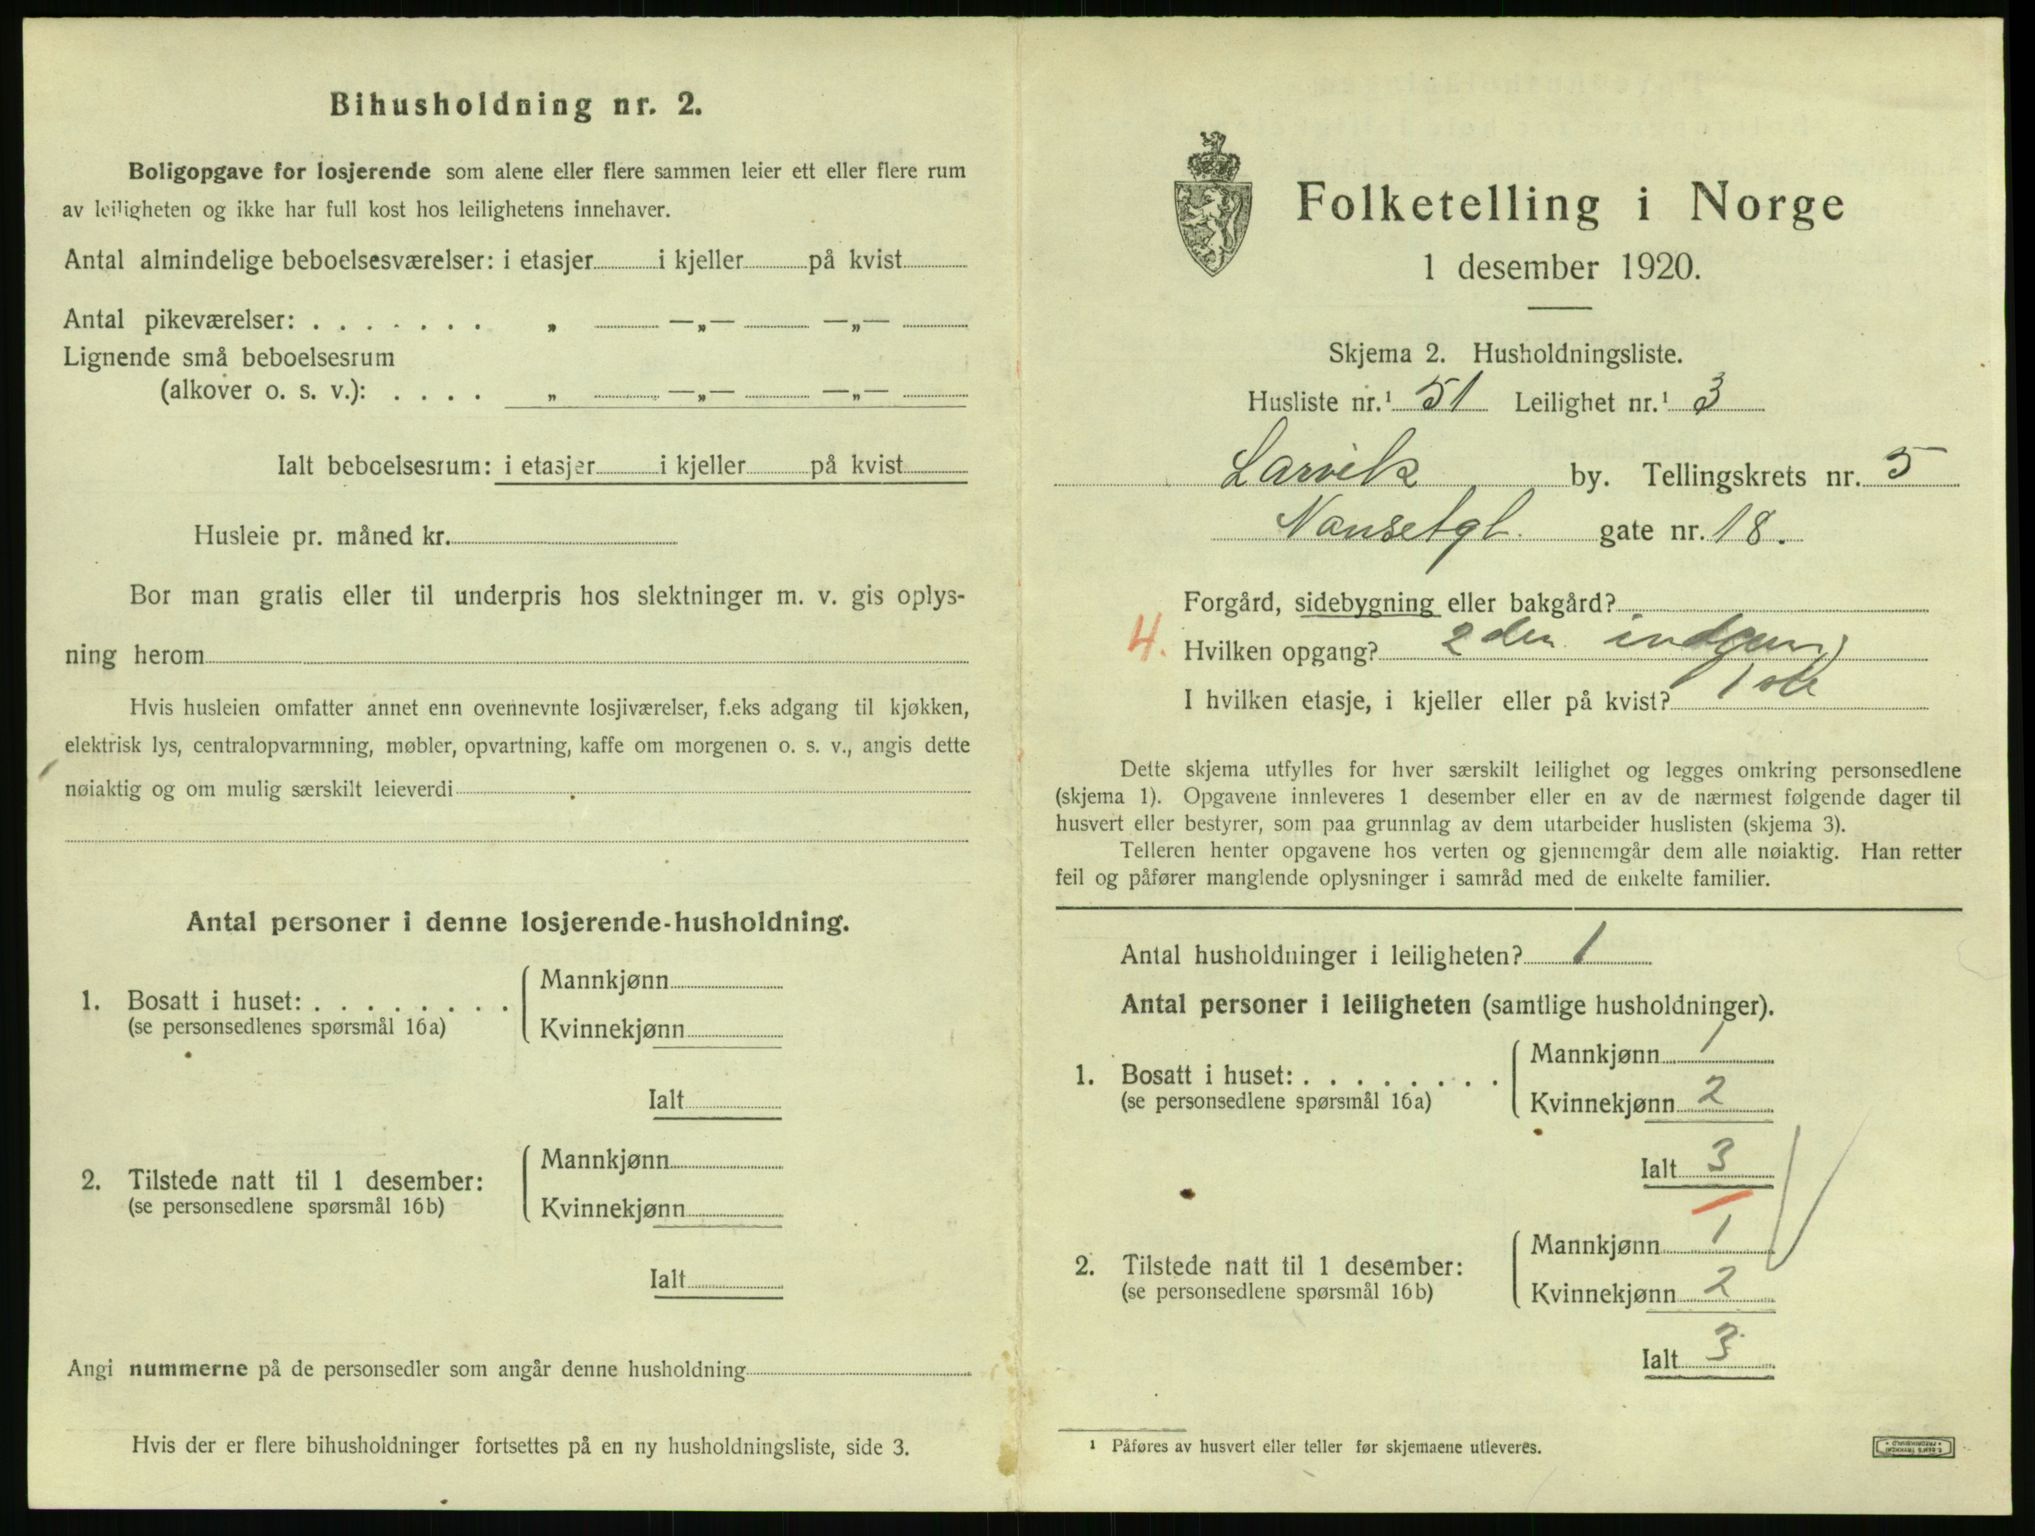 Bihusholdning nr. 2.
Boligopgave for losjerende som alene eller flere sammen leier ett eller flere rum
av leiligheten og ikke har full kost hos leilighetens innehaver.
Antal almindelige beboelsesværelser: i etasjer i kjeller på kvist
Antal pikeværelser: . . . . . . . „ —„— —„—
Lignende små beboelsesrum
(alkover o. s. v.): . . . . „ —„— —„—
Ialt beboelsesrum: i etasjer i kjeller på kvist
Husleie pr. måned kr.
Bor man gratis eller til underpris hos slektninger m. v. gis oplys-
ning herom
Hvis husleien omfatter annet enn ovennevnte losjiværelser, f.eks adgang til kjøkken,
elektrisk lys, centralopvarmning, møbler, opvartning, kaffe om morgenen o. s. v., angis dette
nøiaktig og om mulig særskilt leieverdi
Antal personer i denne losjerende-husholdning.
1. Bosatt i huset: . . . . . . . .
(se personsedlenes spørsmål 16a)
Mannkjønn
Kvinnekjønn
Ialt
2. Tilstede natt til 1 desember:
(se personsedlene spørsmål 16b)
Mannkjønn
Kvinnekjønn
Ialt
Angi nummerne på de personsedler som angår denne husholdning
Hvis der er flere bihusholdninger fortsettes på en ny husholdningsliste, side 3.
Folketelling i Norge
1 desember 1920.
Skjema 2. Husholdningsliste.
Husliste nr.¹ 51 Leilighet nr.¹ 3
Larvik by. Tellingskrets nr. 5
Nansetgt. gate nr. 18.
Forgård, sidebygning eller bakgård?
4. Hvilken opgang? 2den indgang
I hvilken etasje, i kjeller eller på kvist? 1ste
Dette skjema utfylles for hver særskilt leilighet og legges omkring personsedlene
(skjema 1). Opgavene innleveres 1 desember eller en av de nærmest følgende dager til
husvert eller bestyrer, som paa grunnlag av dem utarbeider huslisten (skjema 3).
Telleren henter opgavene hos verten og gjennemgår dem alle nøiaktig. Han retter
feil og påfører manglende oplysninger i samråd med de enkelte familier.
Antal husholdninger i leiligheten? 1
Antal personer i leiligheten (samtlige husholdninger).
1. Bosatt i huset: . . . . . . . .
(se personsedlene spørsmål 16a)
Mannkjønn 1
Kvinnekjønn 2
Ialt 3
2. Tilstede natt til 1 desember:
(se personsedlene spørsmål 16b)
Mannkjønn 1
Kvinnekjønn 2
Ialt 3
¹ Påføres av husvert eller teller før skjemaene utleveres.